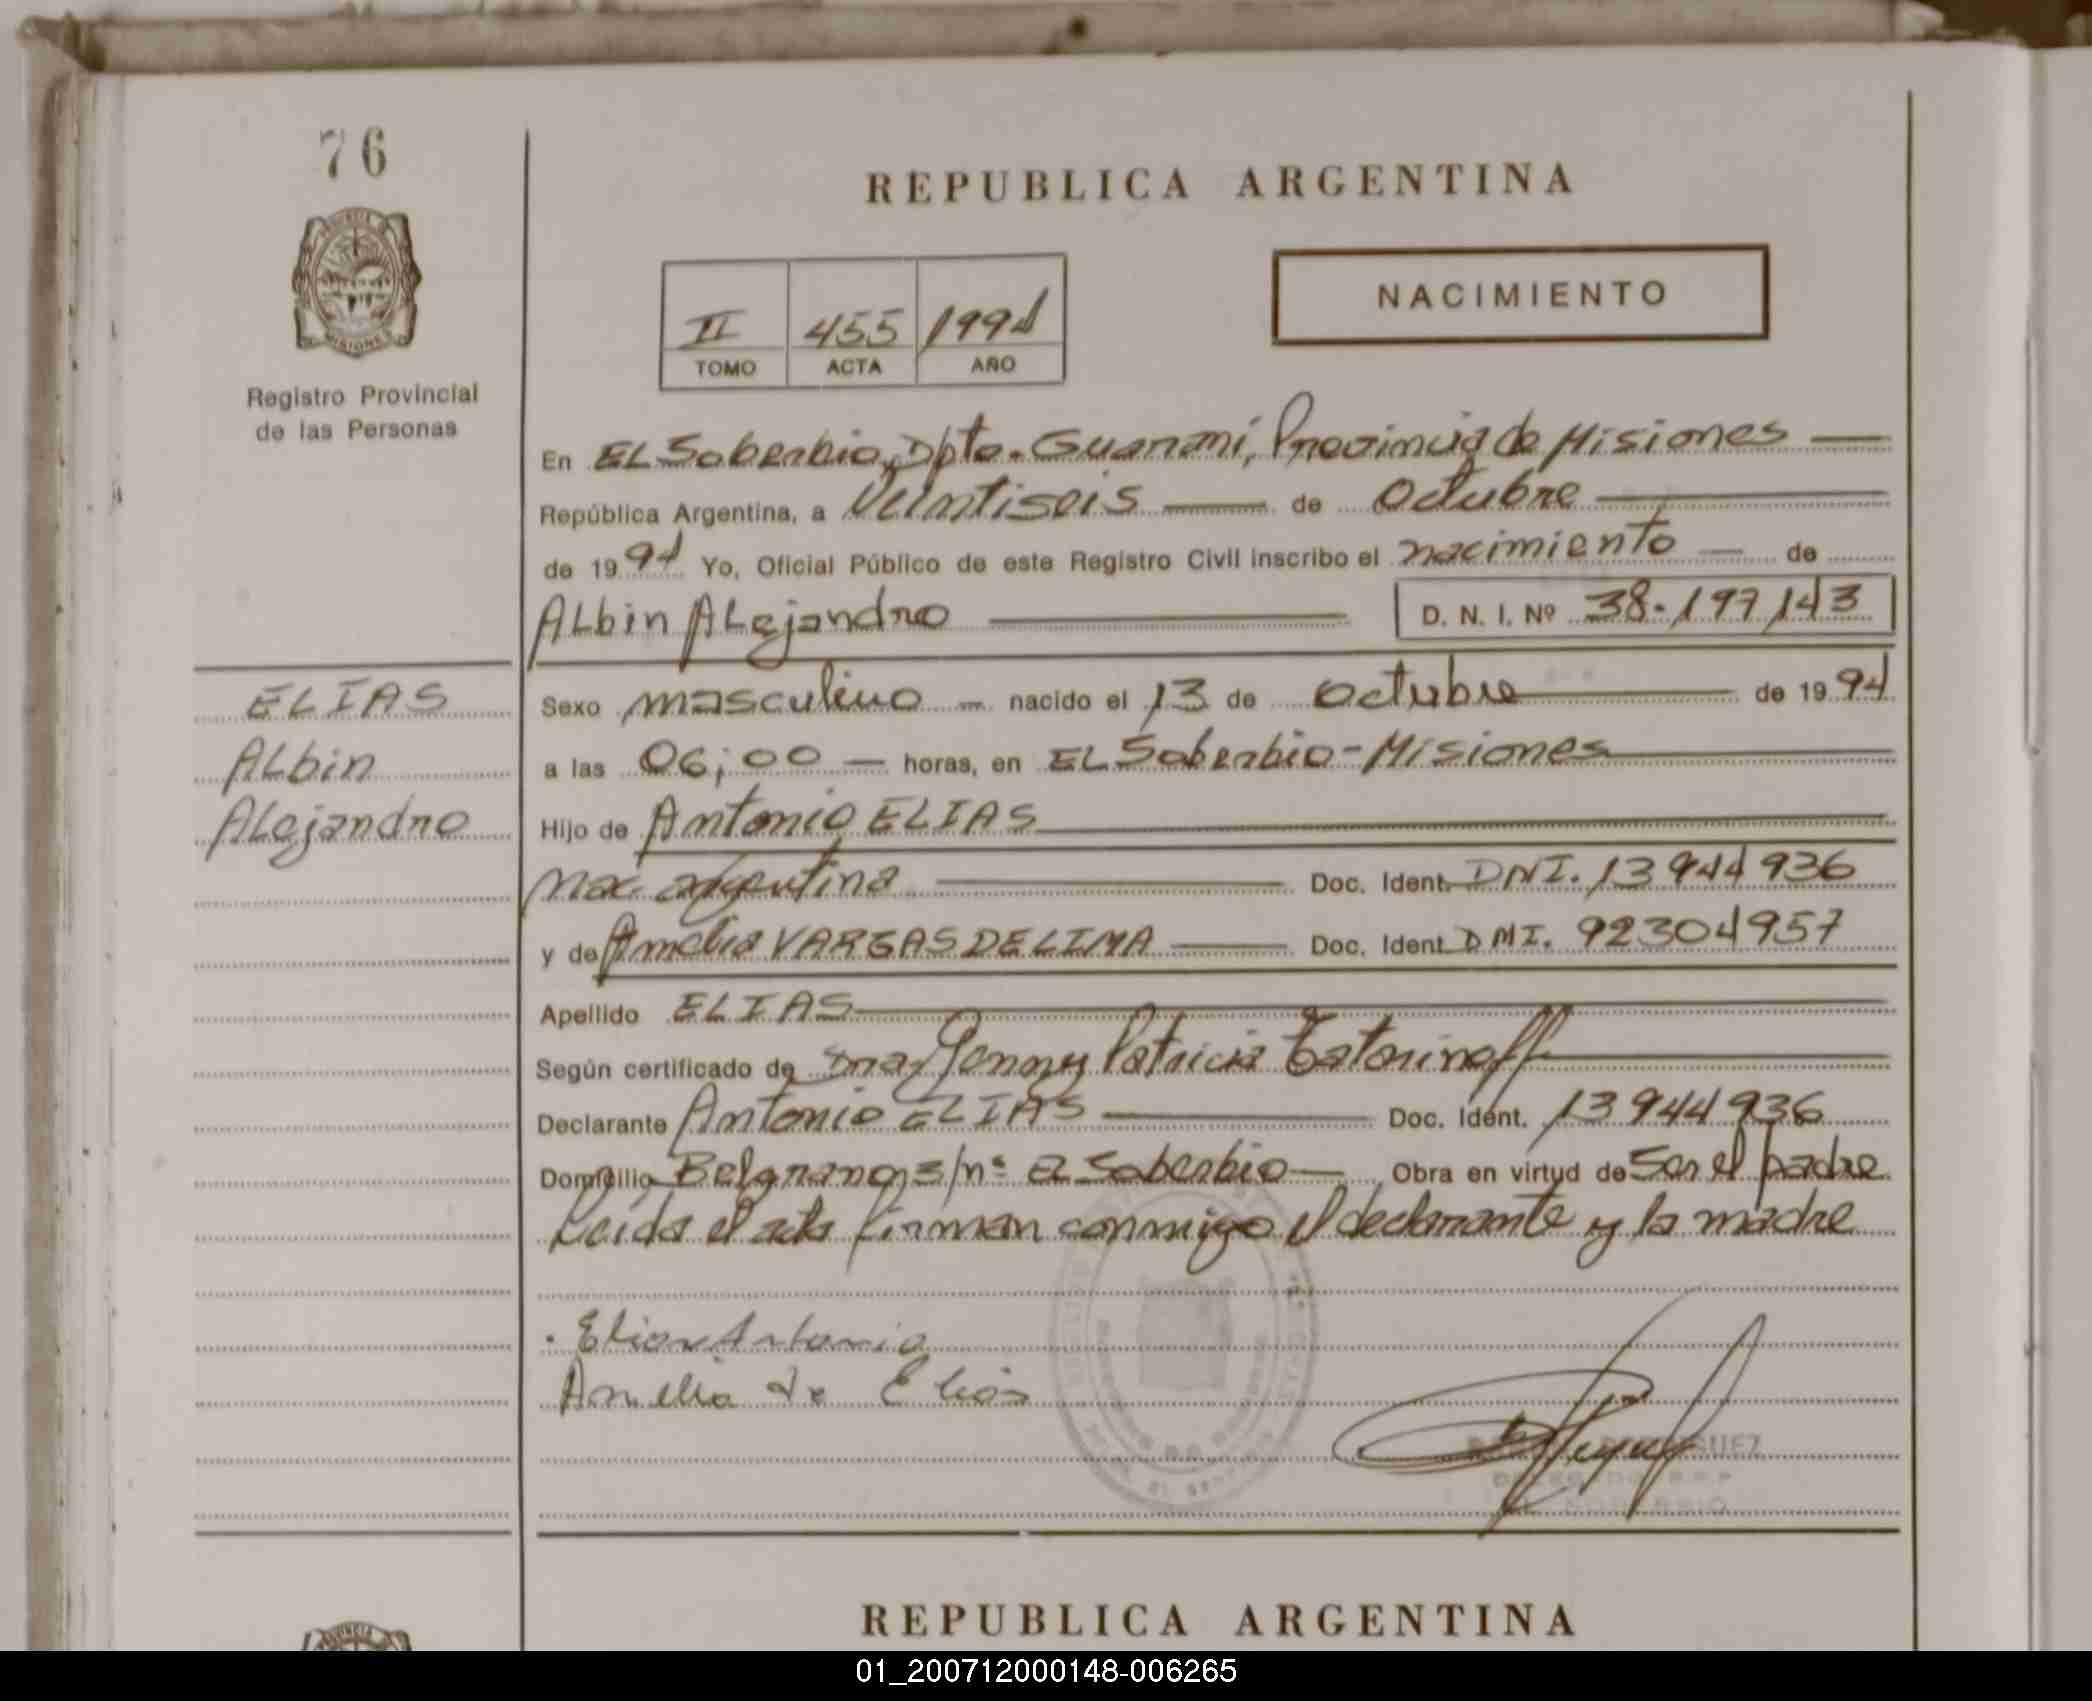 76
REPUBLICA ARGENTINA
NACIMIENTO
II 455 1994
TOMO ACTA AÑO
MISIONES
Registro Provincial
de las Personas
En EL Soberbio, Dpto. Guaraní, Provincia de Misiones
República Argentina, a Veintiseis de Octubre
de 1994 Yo, Oficial Público de este Registro Civil inscribo el nacimiento de
ALbin ALejandro D. N. I. Nº 38.197143
ELIAS
ALbin
ALejandro
Sexo masculino nacido el 13 de Octubre de 1994
a las 06;00 horas, en EL Soberbio - Misiones
Hijo de Antonio ELIAS
nac. argentina Doc. Ident. DNI. 13944936
y de Amelia VARGAS DE LIMA Doc. Ident. DNI. 92304957
Apellido ELIAS
Según certificado de Dra. Jenny Patricia
Declarante Antonio ELIAS Doc. Ident. 13944936
Domicilio Belgrano s/nº El Soberbio Obra en virtud de Ser el padre
Leída el acta firman conmigo el declarante y la madre
Elias Antonio
Amelia de Elias
REPUBLICA ARGENTINA
01_200712000148-006265